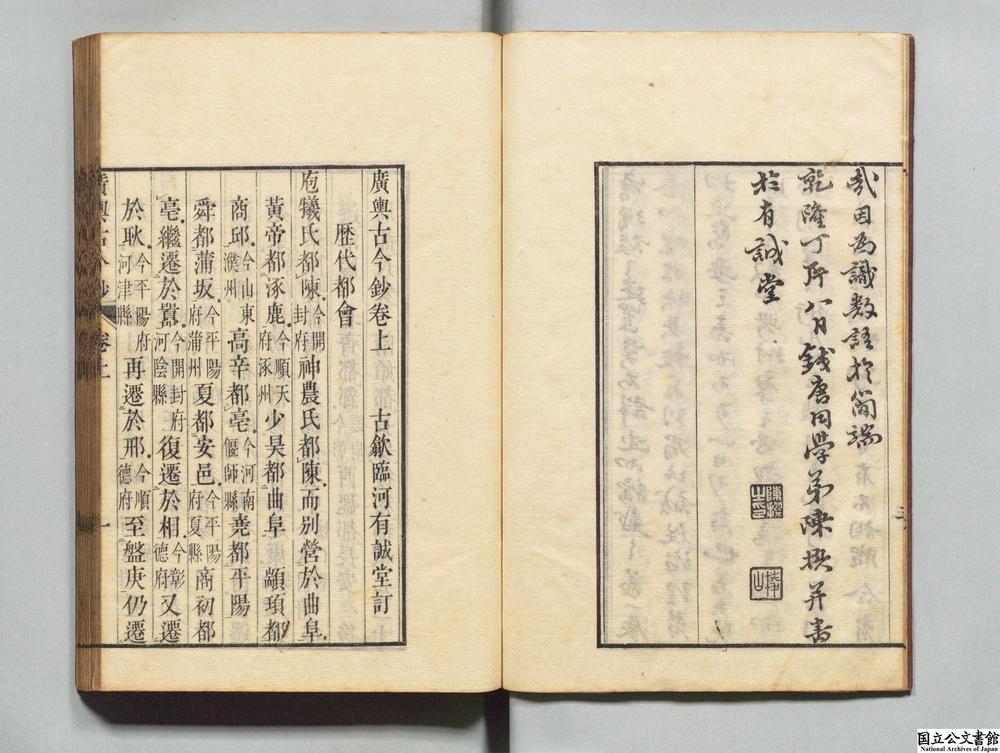 哉因為識數語於簡端
乾隆丁所八月錢唐同學弟陳撰并書
於有誠堂
陳撰之印
廣輿古今鈔卷上　古歙臨河有誠堂訂
歷代都會
庖犧氏都陳今開封府神農氏都陳而别營於曲阜
黃帝都涿鹿今順天府涿州少昊都曲阜顓頊都
商邱今山東濮州高辛都亳今河南偃師縣堯都平陽
舜都蒲坂今平陽府蒲州夏都安邑今平陽府夏縣商初都
亳繼遷於囂今開封府河陰縣復遷於相今彰德府又遷
於耿今平陽府河津縣再遷於邢今順德府至盤庚仍遷
廣輿古今鈔　卷上　一
国立公文書館
National Archives of Japan